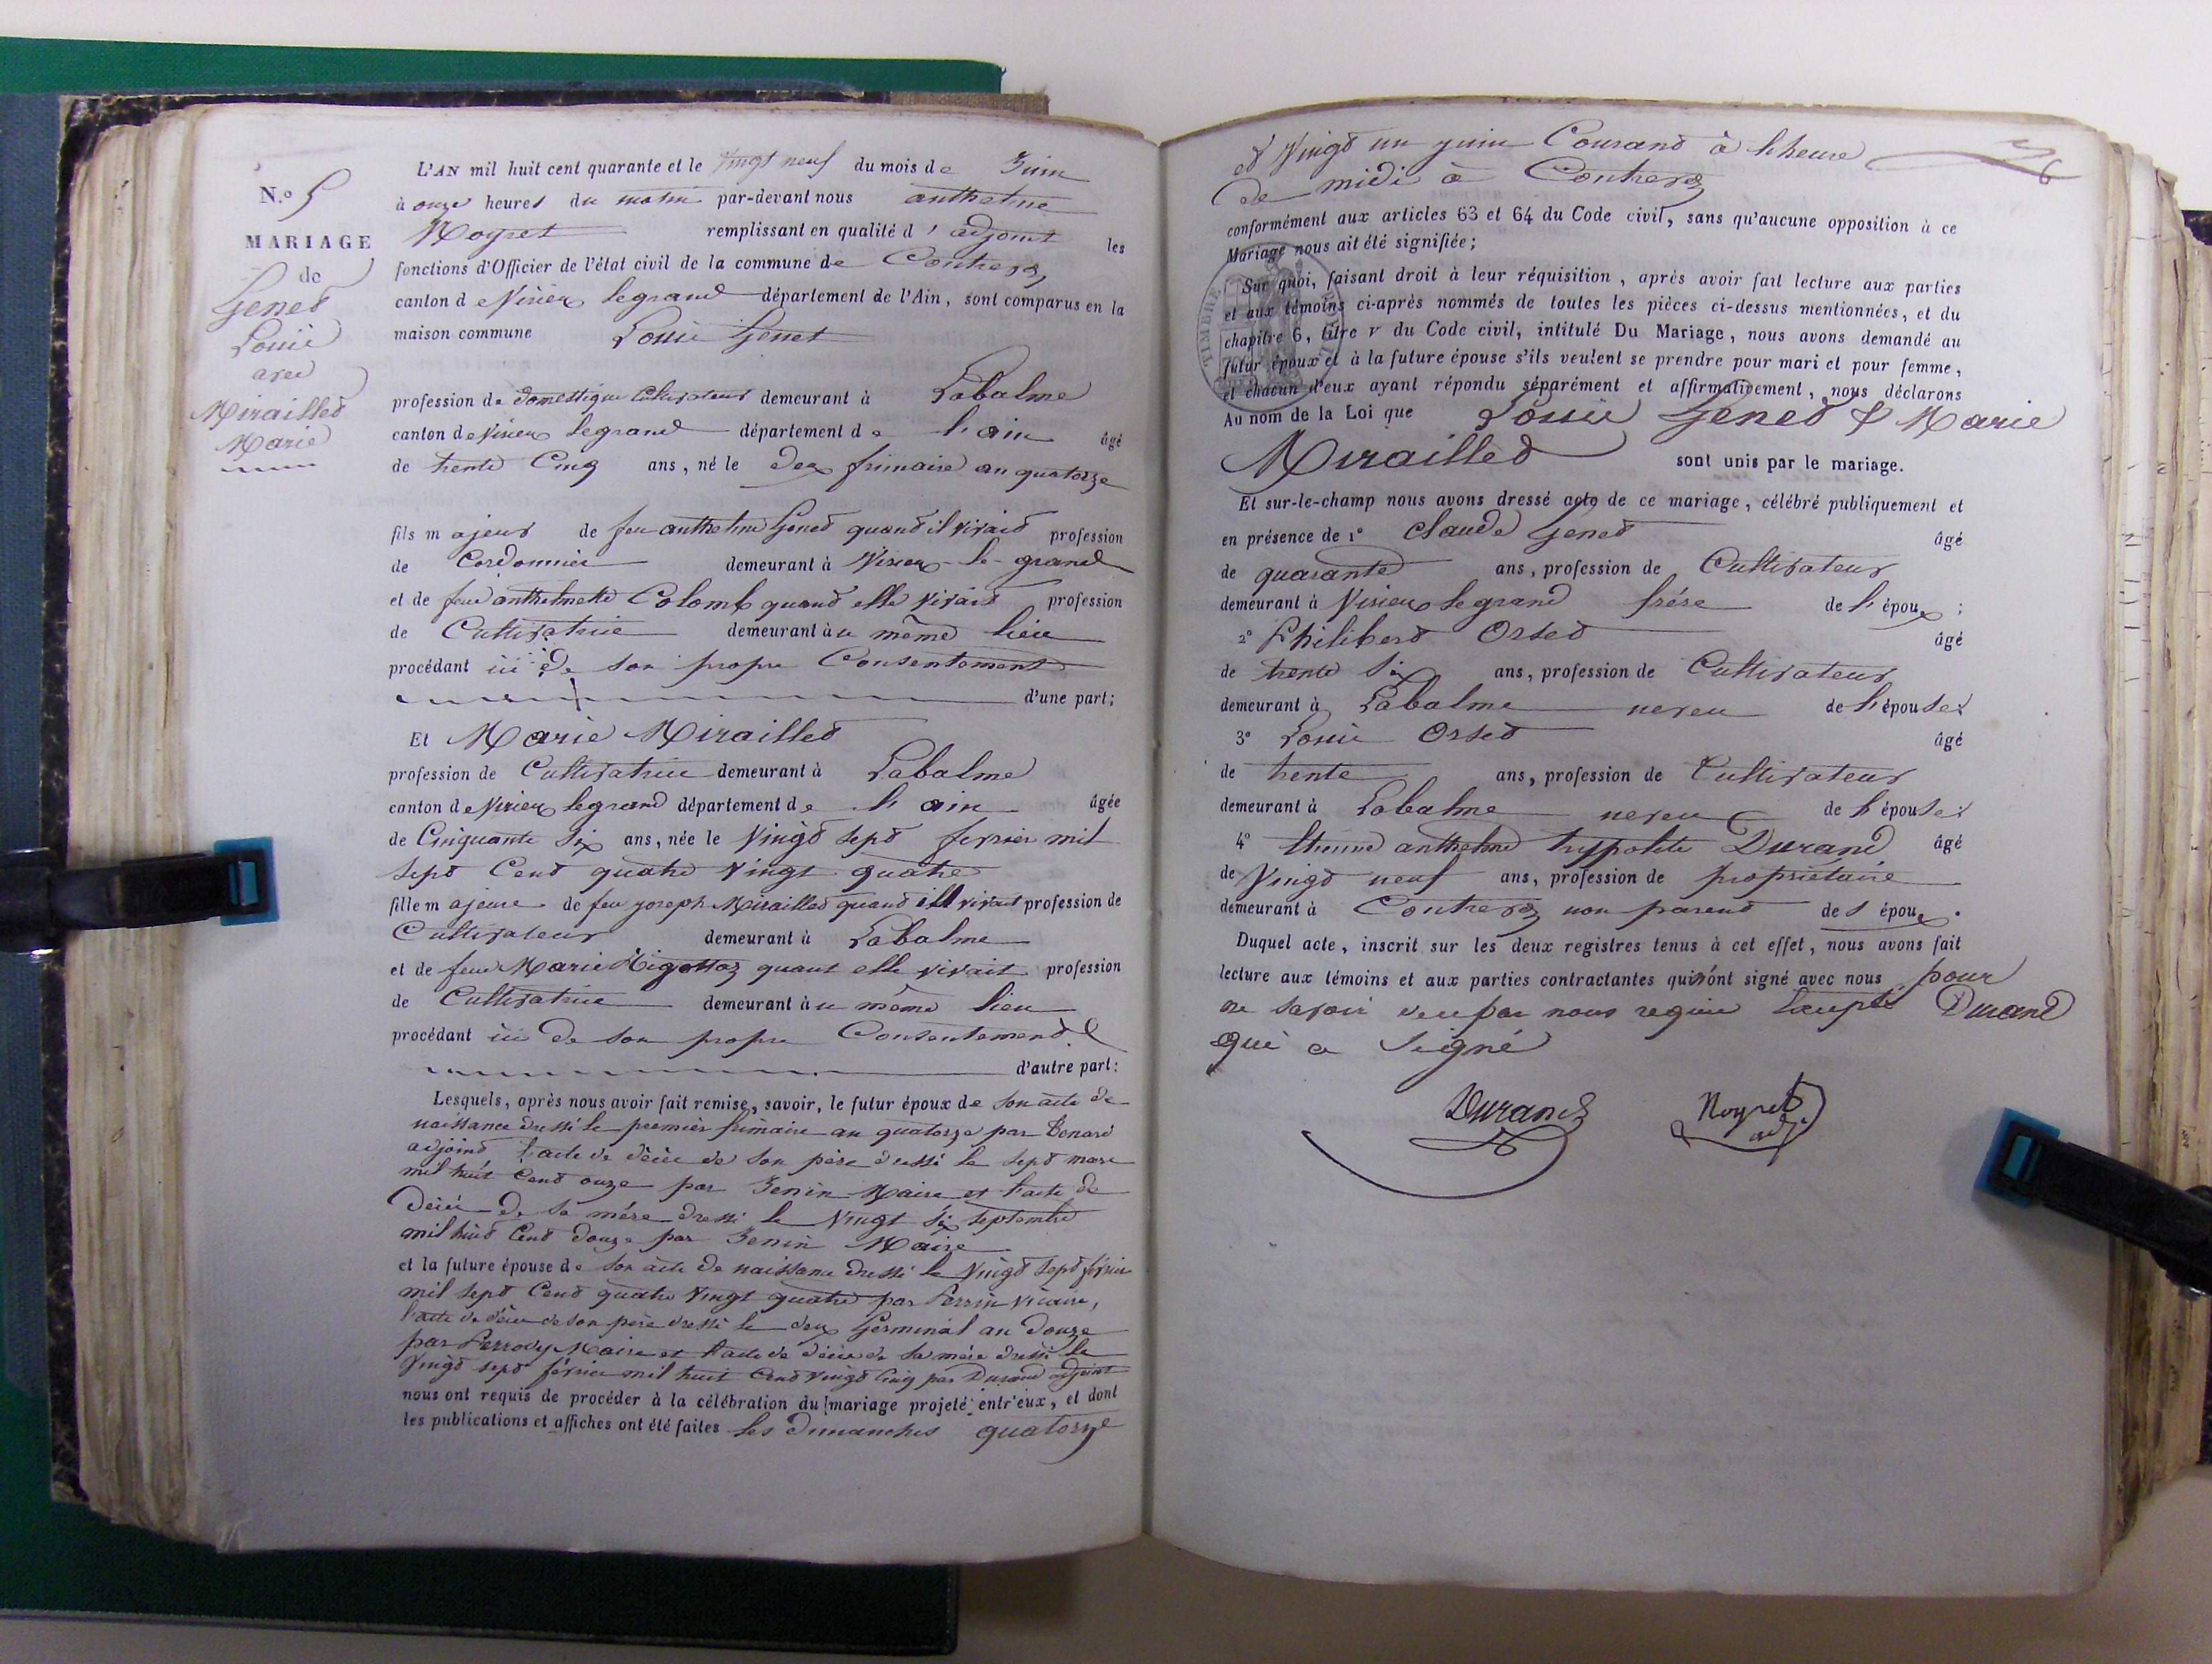 N.º 5
MARIAGE
de
Genet
Louis
avec
Miraillet
Marie
L'AN mil huit cent quarante et le vingt neuf du mois de Juin
à onze heures du matin par-devant nous anthelme
Noyret remplissant en qualité d' adjoint les
fonctions d'Officier de l'état civil de la commune de Contrevoz
canton de Virieu legrand département de l'Ain, sont comparus en la
maison commune Louis Genet
profession de domestique Cultivateur demeurant à Labalme
canton de Virieu legrand département de l'ain âgé
de trente Cinq ans, né le deux frimaire an quatorze
fils majeur de feu anthelme Genet quand il vivait profession
de Cordonnier demeurant à Virieu-le-grand
et de feue anthelmette Colomb quand elle vivait profession
de Cultivatrice demeurant au même lieu
procédant ici de son propre Consentement
d'une part;
Et Marie Miraillet
profession de Cultivatrice demeurant à Labalme
canton de Virieu legrand département de l'ain âgée
de Cinquante Six ans, née le Vingt Sept fevrier mil
Sept Cent quatre Vingt quatre
fille majeure de feu joseph Miraillet quand ill vivait profession de
Cultivateur demeurant à Labalme
et de feue Marie Rigottaz quant elle vivait profession
de Cultivatrice demeurant au même lieu
procédant ici de son propre Consentement
d'autre part:
Lesquels, après nous avoir fait remise, savoir, le futur époux de Son acte de
naissance dressé le premier frimaire an quatorze par
adjoint l'acte de décès de Son père dressé le Sept mars
mil huit Cent onze par Jenin Maire et l'acte de
décès de Sa mère dressé le Vingt Six Septembre
mil huit Cent douze par Jenin Maire
et la future épouse de Son acte de naissance dressé le Vingt Sept février
mil Sept Cent quatre Vingt quatre par Perrin Vicaire,
l'acte de décès de Son père dressé le deux Germinal an douze
par Perrody Maire et l'acte de décès de Sa mère dressé le
Vingt Sept février mil huit Cent Vingt Cinq par Durand adjoint
nous ont requis de procéder à la célébration du mariage projeté entr'eux, et dont
les publications et affiches ont été faites les dimanches quatorze
et Vingt un juin Courant à l'heure
de midi à Contrevoz
conformément aux articles 63 et 64 du Code civil, sans qu'aucune opposition à ce
Mariage nous ait été signifiée;
TIMBRE
Sur quoi, faisant droit à leur réquisition, après avoir fait lecture aux parties
et aux témoins ci-après nommés de toutes les pièces ci-dessus mentionnées, et du
chapitre 6, titre v du Code civil, intitulé Du Mariage, nous avons demandé au
futur époux et à la future épouse s'ils veulent se prendre pour mari et pour femme,
et chacun d'eux ayant répondu séparément et affirmativement, nous déclarons
Au nom de la Loi que Louis Genet & Marie
Miraillet sont unis par le mariage.
Et sur-le-champ nous avons dressé acte de ce mariage, célébré publiquement et
en présence de 1º Claude Genet âgé
de quarante ans, profession de Cultivateur
demeurant à Virieu legrand frére de l'époux;
2º Philibert Orset âgé
de trente Six ans, profession de Cultivateur
demeurant à Labalme neveu de l'épouse;
3º Louis Orset âgé
de trente ans, profession de Cultivateur
demeurant à Labalme neveu de l'épouse;
4º Etienne anthelme hyppolite Durand âgé
de Vingt neuf ans, profession de propriétaire
demeurant à Contrevoz non parent des époux.
Duquel acte, inscrit sur les deux registres tenus à cet effet, nous avons fait
lecture aux témoins et aux parties contractantes qui n'ont signé avec nous pour
ne Savoir de ce par nous requis Excepté Durand
qui a Signé
Durand
Noyret
adj.